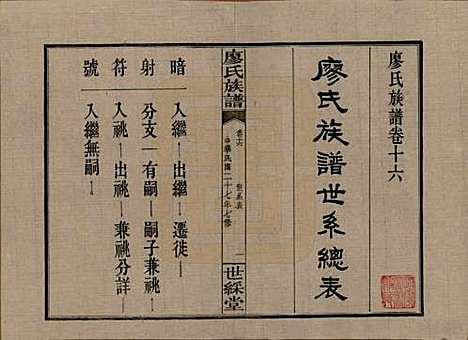 廖氏族譜卷十六
廖氏族譜世系總表
廖氏族譜
卷十六
世系表
中華民國二十七年七修
一
世綵堂
暗 入繼—— 出繼—— 遷徙——
射 分支—— 有嗣—— 嗣子兼祧——
符 入祧—— 出祧—— 兼祧分詳——
號 入繼無嗣——